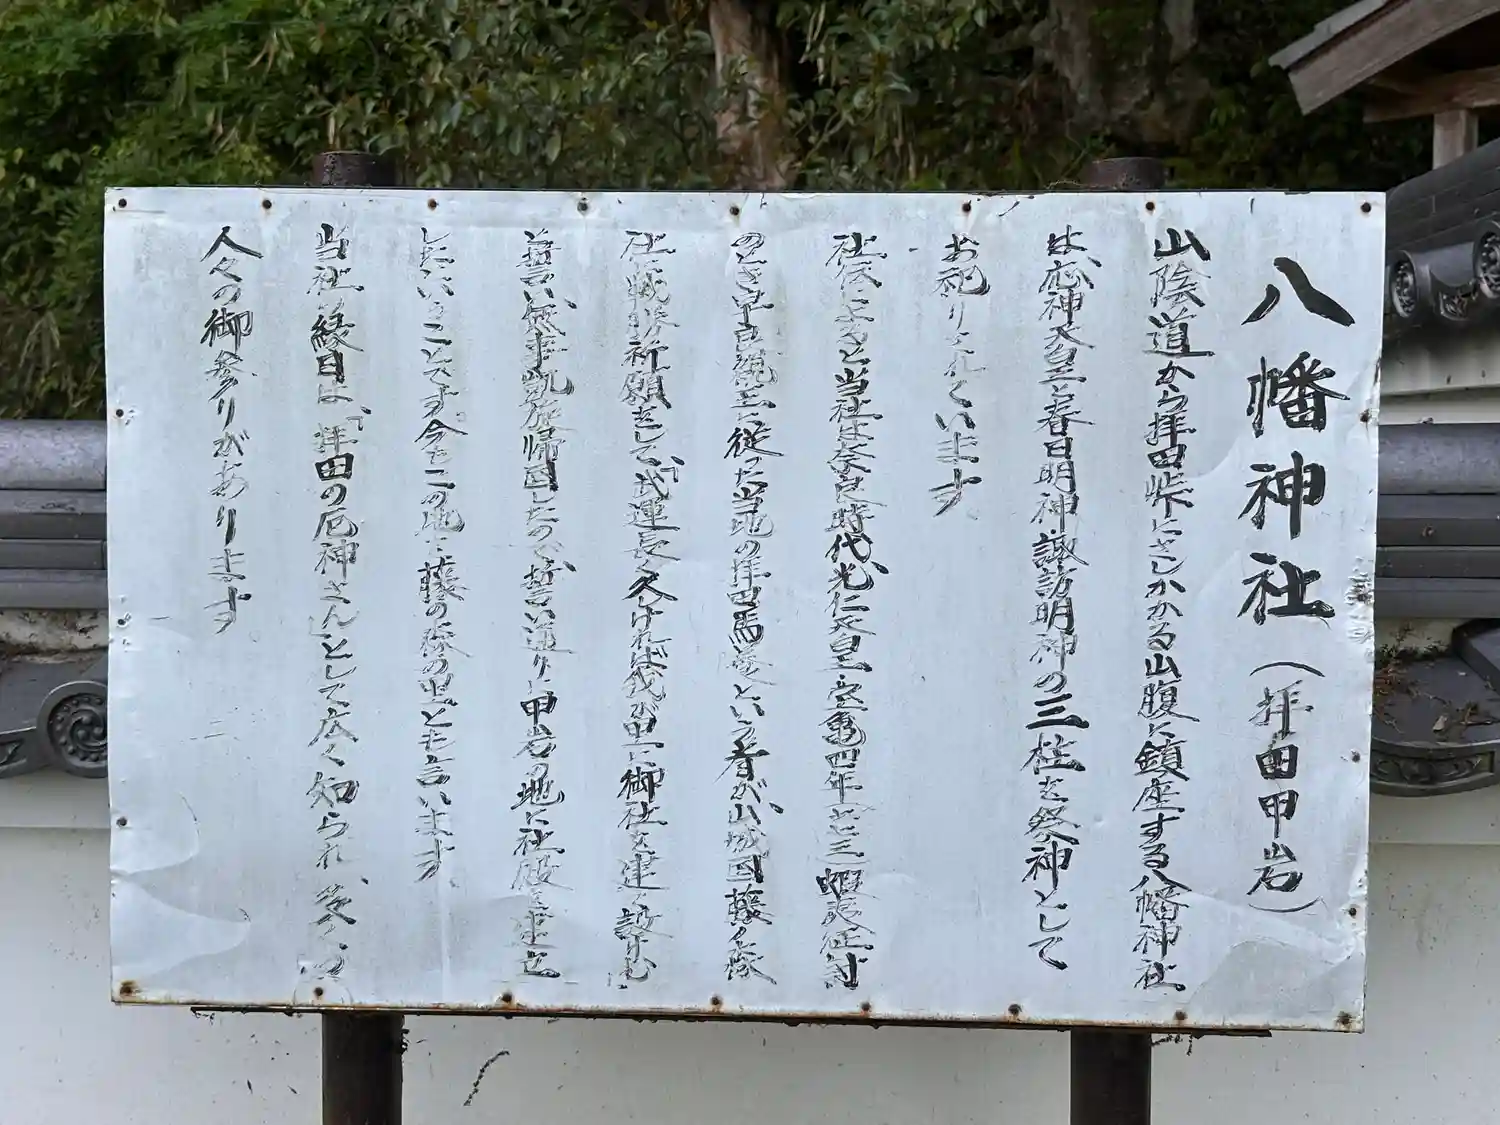 八幡神社(拝田甲岩)
山陰道から拝田峠にさしかかる山腹に鎮座する八幡神社
は、応神天皇と春日明神、諏訪明神の三柱を祭神として
お祀りされています。
社伝によると当社は奈良時代、光仁天皇、宝亀四年(七七三)蝦夷征討
のとき早良親王に従った当地の拝田馬 という者が、山城国藤ノ森
社に戦勝祈願をして、「武運長く久しければ我が里に御社を建て設けむ
と誓い、無事凱旋帰国したので、誓い通りに甲岩の地に社殿を建立
したということです。今もこの地を藤の森の里とも言います。
当社の縁日は、「拝田の厄神さん」として広く知られ、
人々の御参りがあります。